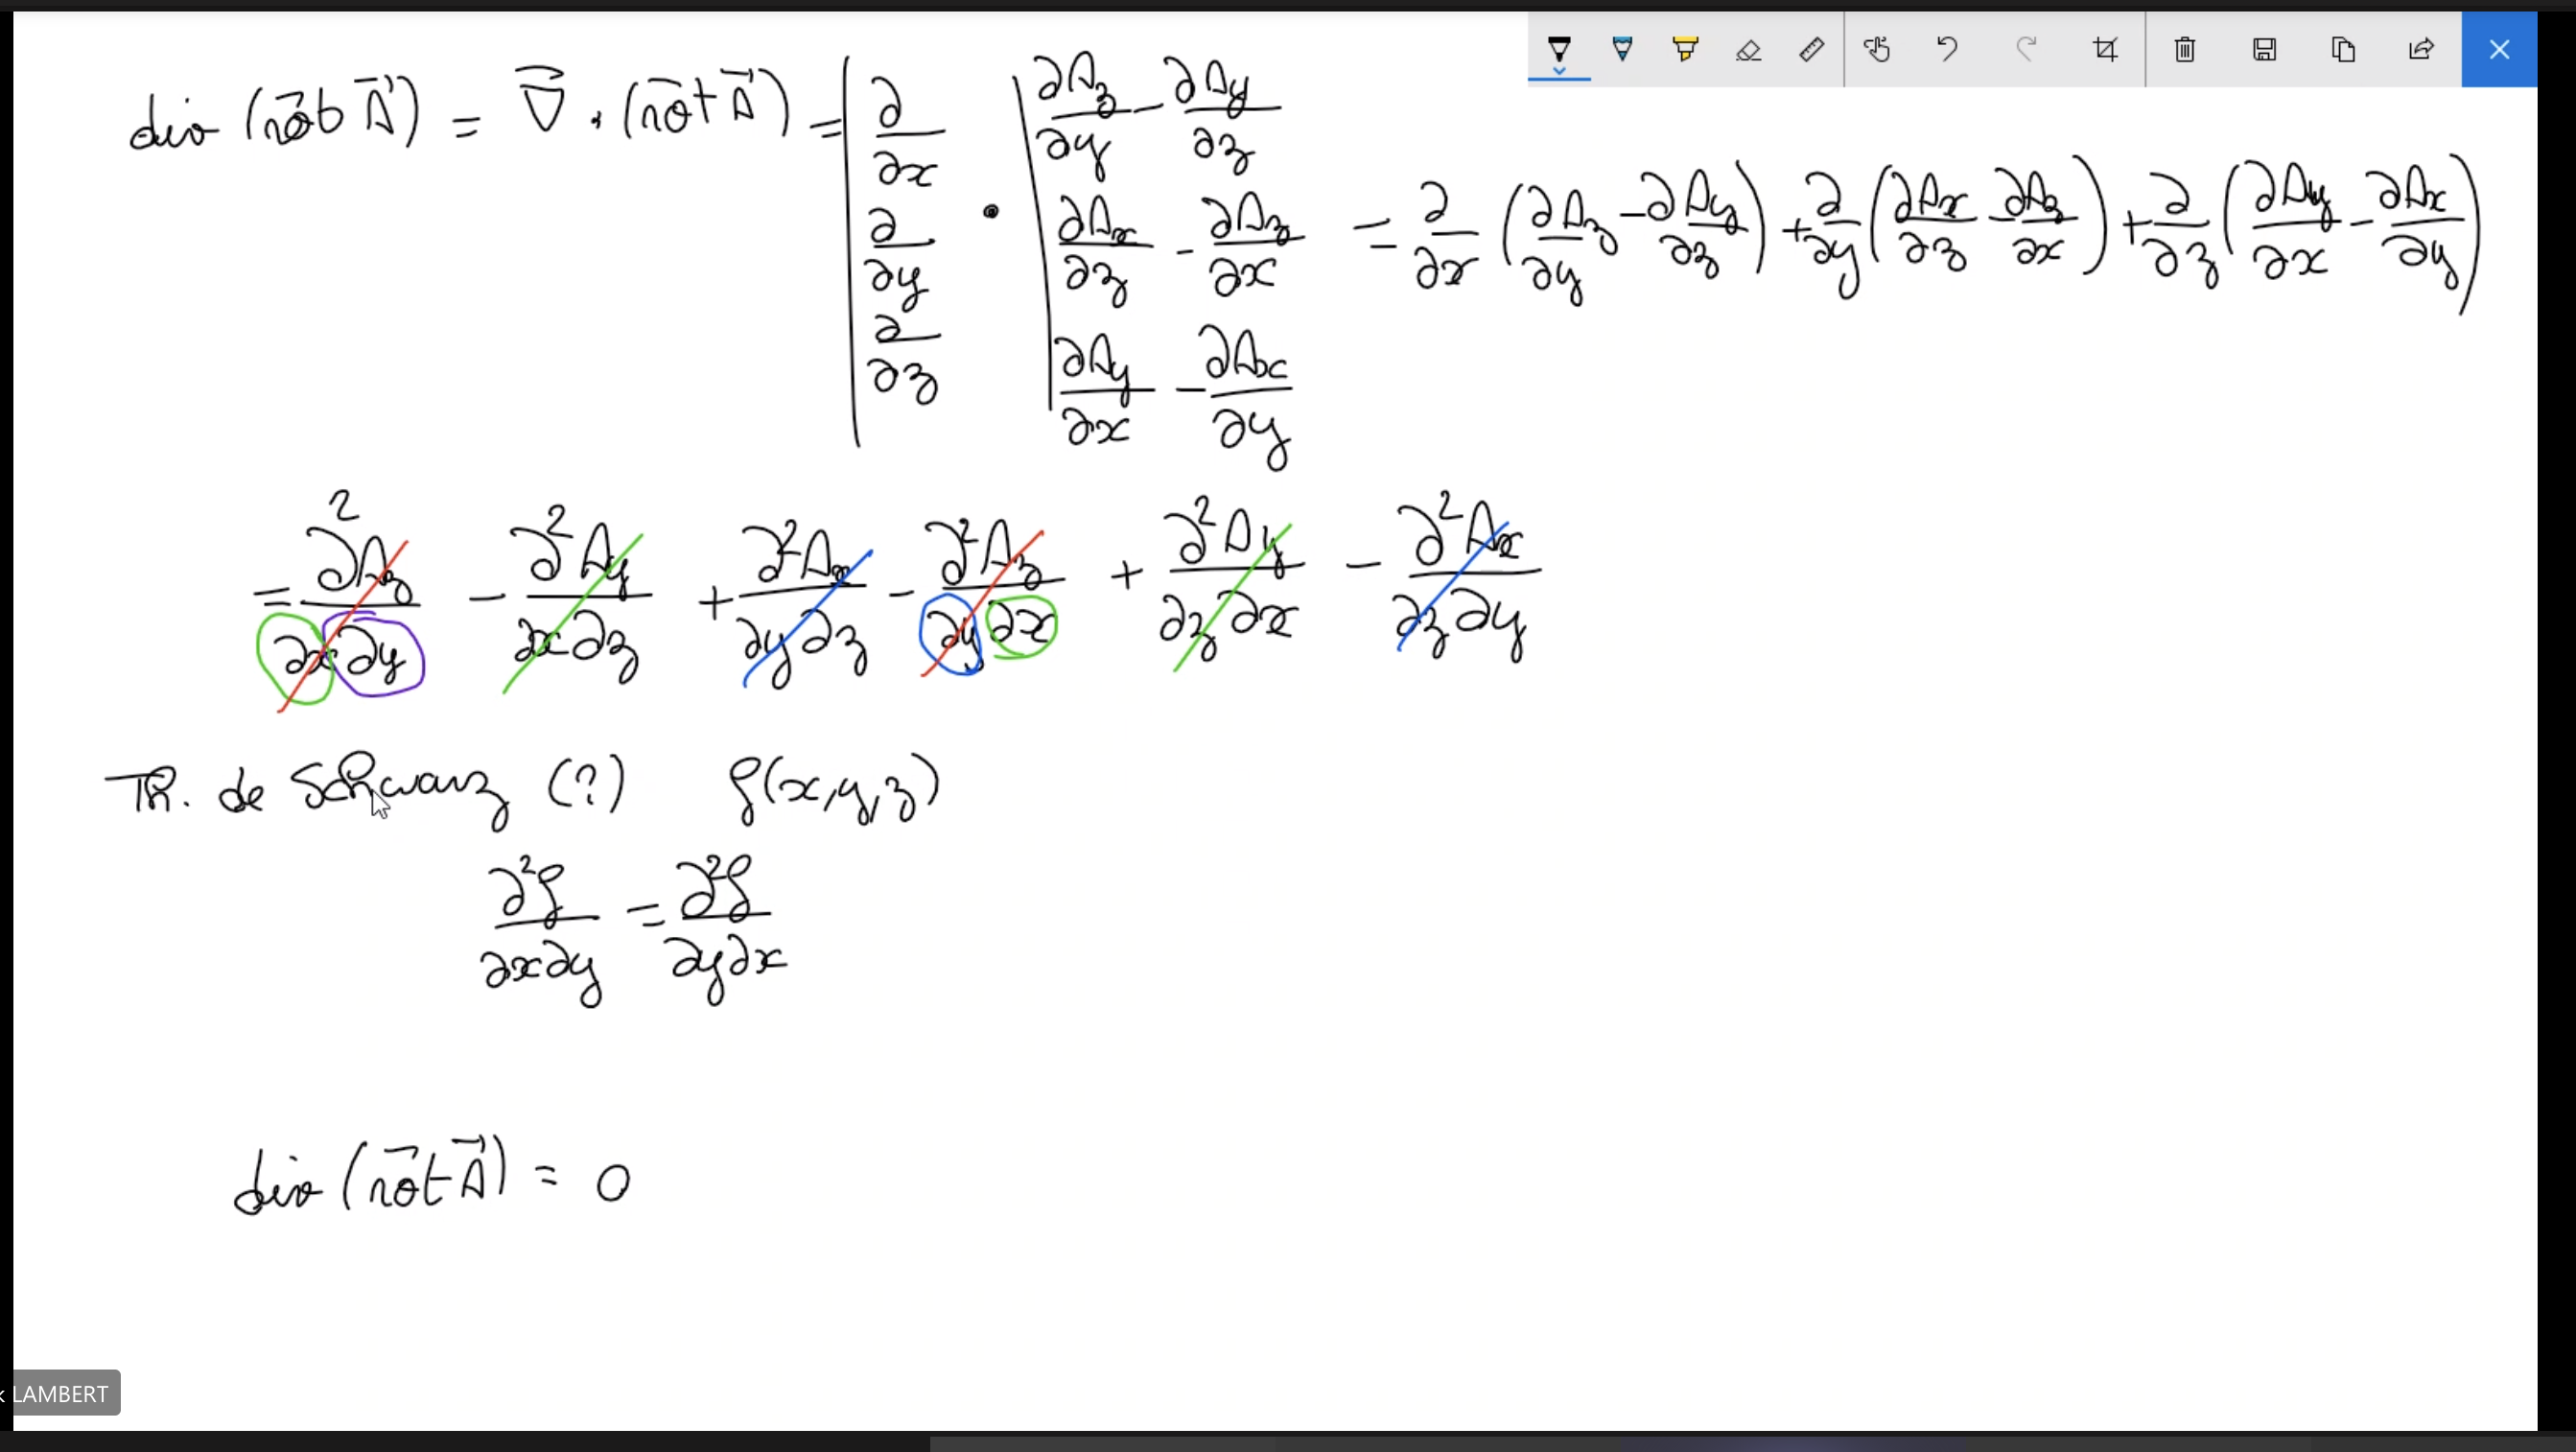 div (rot A⃗) = ∇⃗ . (rot A⃗) = | ∂/∂x ; ∂/∂y ; ∂/∂z • | ∂Az/∂y - ∂Ay/∂z ; ∂Ax/∂z - ∂Az/∂x ; ∂Ay/∂x - ∂Ax/∂y = ∂/∂x (∂Az/∂y - ∂Ay/∂z) + ∂/∂y (∂Ax/∂z - ∂Az/∂x) + ∂/∂z (∂Ay/∂x - ∂Ax/∂y)
= ∂²Az/∂x∂y - ∂²Ay/∂x∂z + ∂²Ax/∂y∂z - ∂²Az/∂y∂x + ∂²Ay/∂z∂x - ∂²Ax/∂z∂y
Th. de Schwarz (?) f(x,y,z)
∂²f/∂x∂y = ∂²f/∂y∂x
div (rot A⃗) = 0
LAMBERT